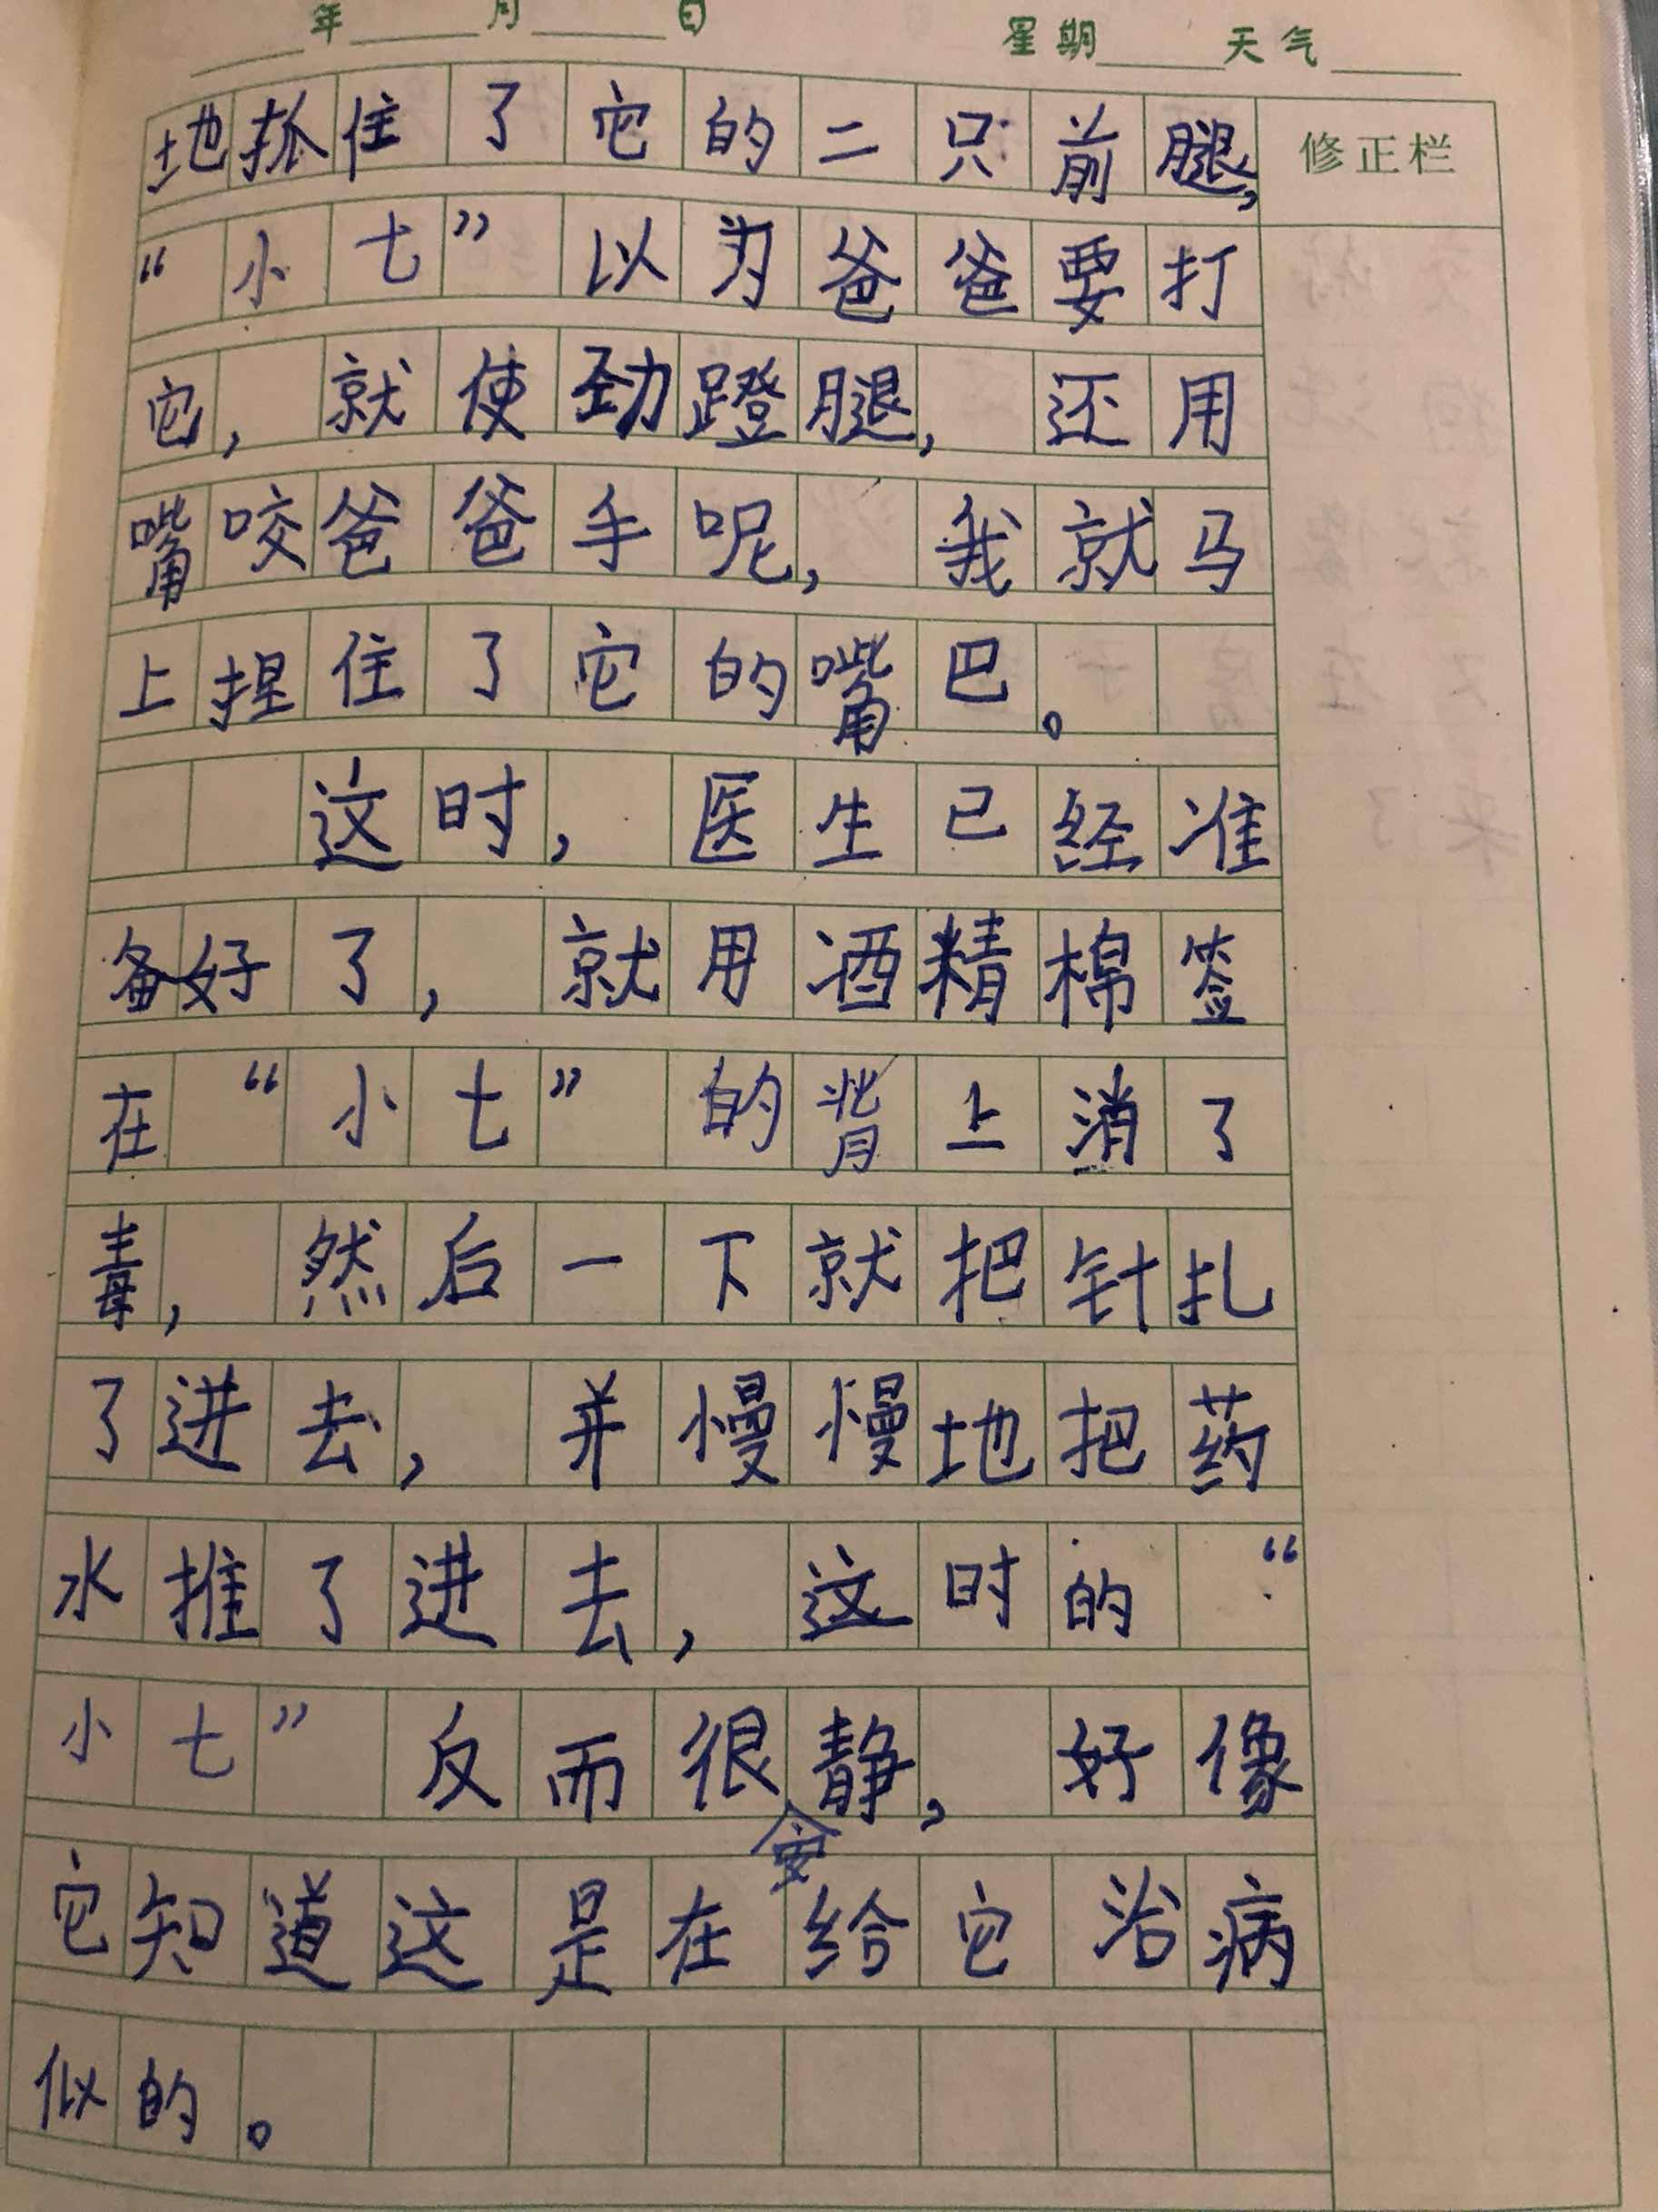 年 月 日 星期 天气
地抓住了它的二只前腿,
修正栏
“小七”以为爸爸要打
它,就使劲蹬腿,还用
嘴咬爸爸手呢,我就马
上捏住了它的嘴巴。
这时,医生已经准
备好了,就用酒精棉签
在“小七”的背上消了
毒,然后一下就把针扎
了进去,并慢慢地把药
水推了进去,这时的“
小七”反而很安静,好像
它知道这是在给它治病
似的。